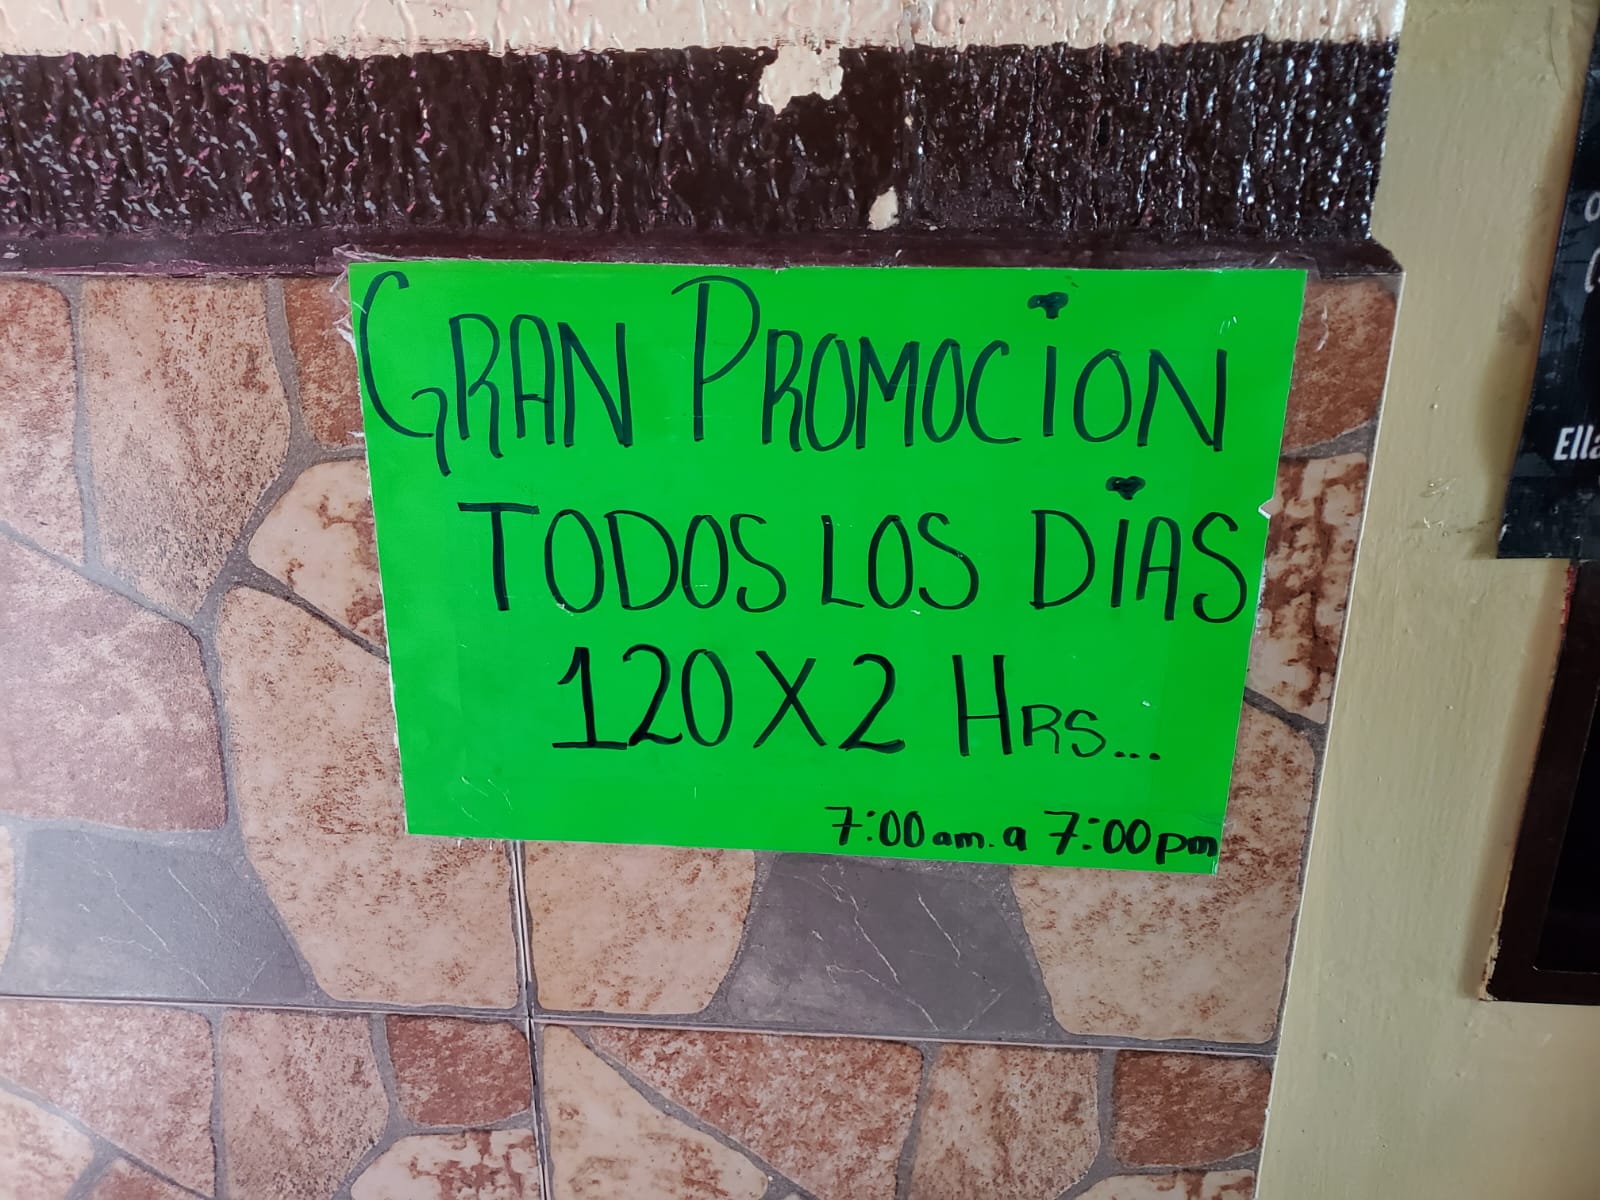 GRAN PROMOCION
TODOS LOS DIAS
120 X 2 HRS...
7:00 am. a 7:00 pm
Ella